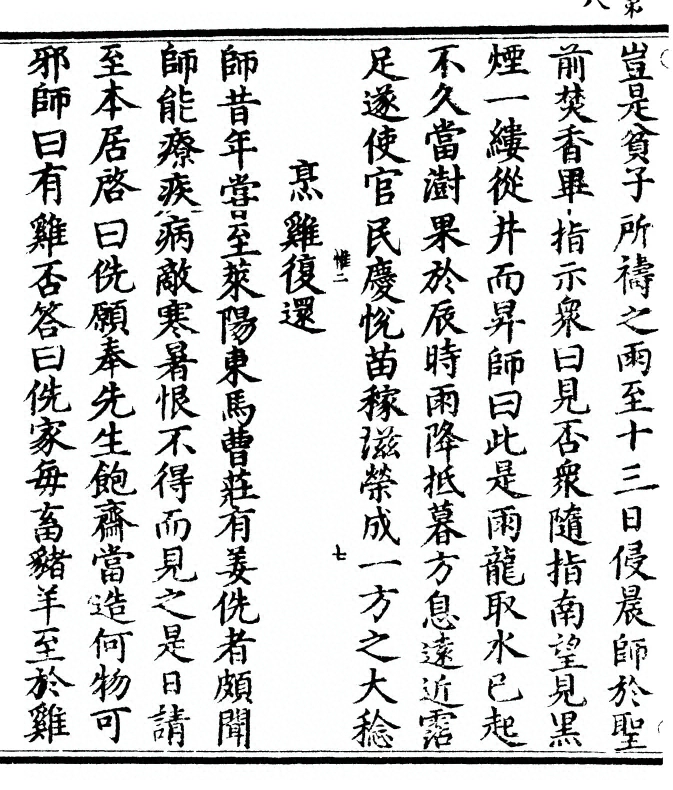 豈是貧子所禱之雨至十三日侵晨師於聖
前焚香畢指示衆曰見否衆隨指南望見黑
煙一縷從井而昇師曰此是雨龍取水已起
不久當澍果於辰時雨降抵暮方息遠近霑
足遂使官民慶悅苗稼滋榮成一方之大稔
惟二
七
烹雞復還
師昔年嘗至萊陽東馬曹莊有姜侁者頗聞
師能療疾病敵寒暑恨不得而見之是日請
至本居啓曰侁願奉先生飽齋當造何物可
邪師曰有雞否答曰侁家每畜豬羊至於雞